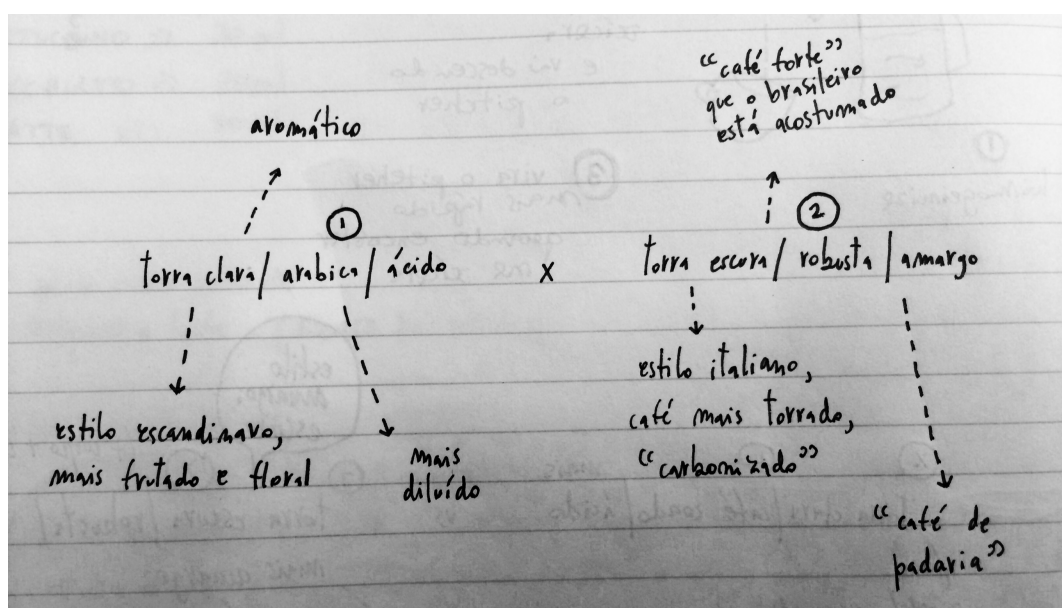 aromático
①
torra clara / arabica / ácido
estilo escandinavo,
mais frutado e floral
mais
diluído
x
"café forte"
que o brasileiro
está acostumado
②
torra escura / robusta / amargo
estilo italiano,
café mais torrado,
"carbonizado"
"café de
padaria"